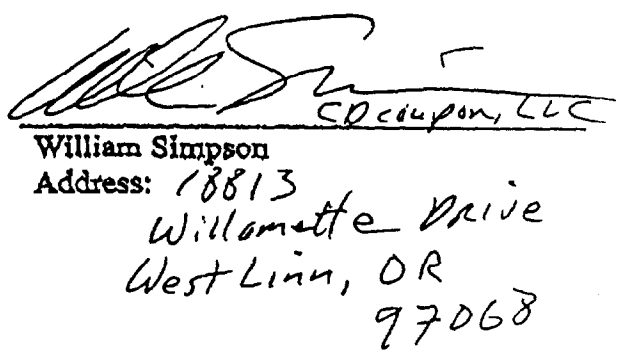 CDcoupon, LLC
William Simpson
Address: 18813
Willamette Drive
West Linn, OR
97068